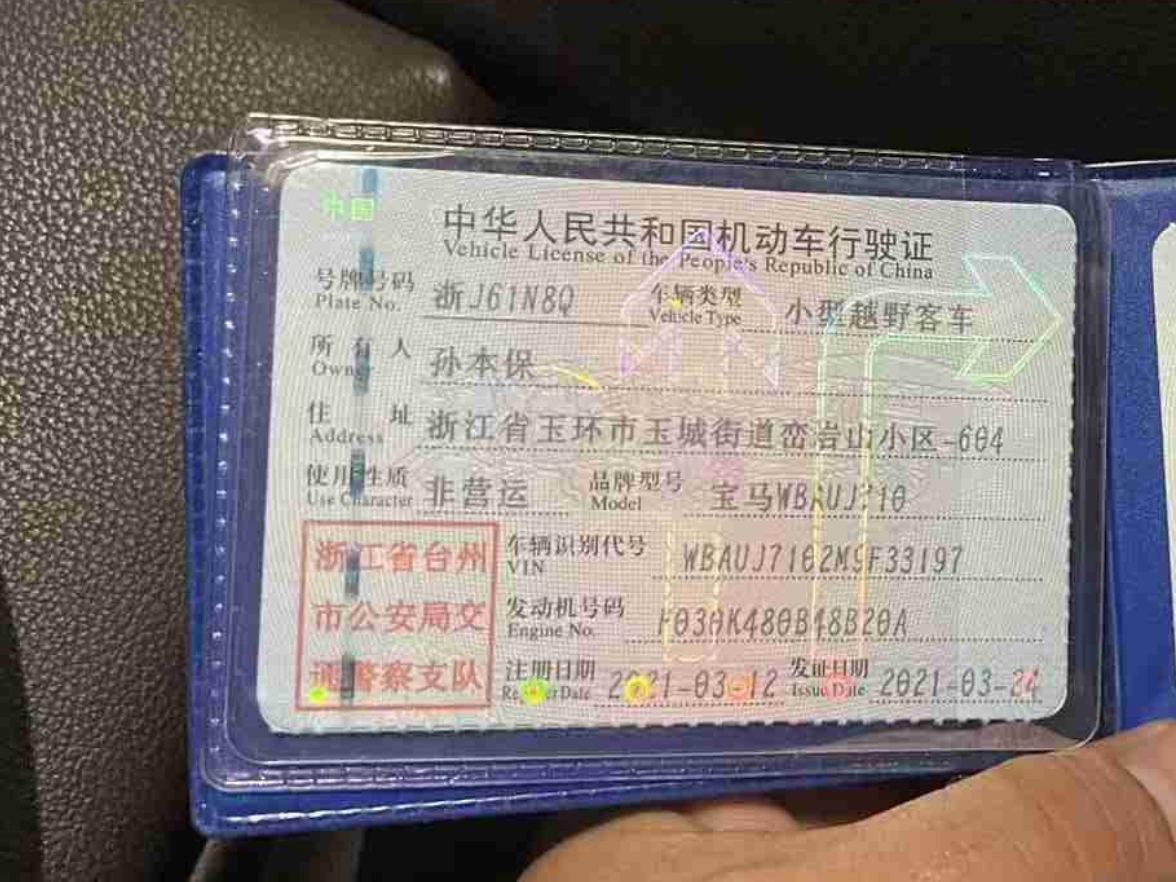 中国
中华人民共和国机动车行驶证
Vehicle License of the People's Republic of China
号牌号码 浙J61N8Q 车辆类型 小型越野客车
Plate No. Vehicle Type
所有人 孙本保
Owner
住址 浙江省玉环市玉城街道峦岩山小区-604
Address
使用性质 非营运 品牌型号 宝马WBAUJ710
Use Character Model
浙江省台州
市公安局交
通警察支队
车辆识别代号 WBAUJ7102M9F33197
VIN
发动机号码
Engine No.
注册日期 2021-03-12 发证日期 2021-03-24
Register Date Issue Date